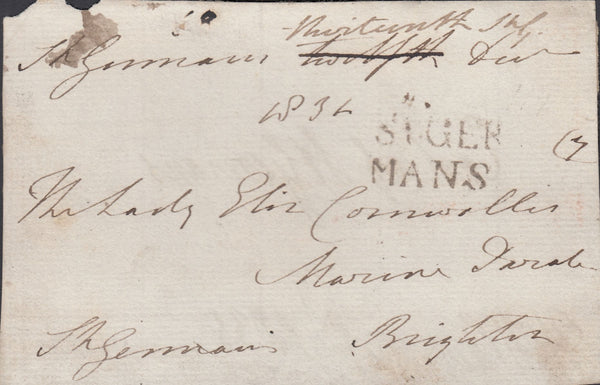 thirteenth July
St Germans twelfth Dec
1831
ST. GER
MANS
The Lady Eliz Cornwallis
Marine Parade
St Germans Brighton